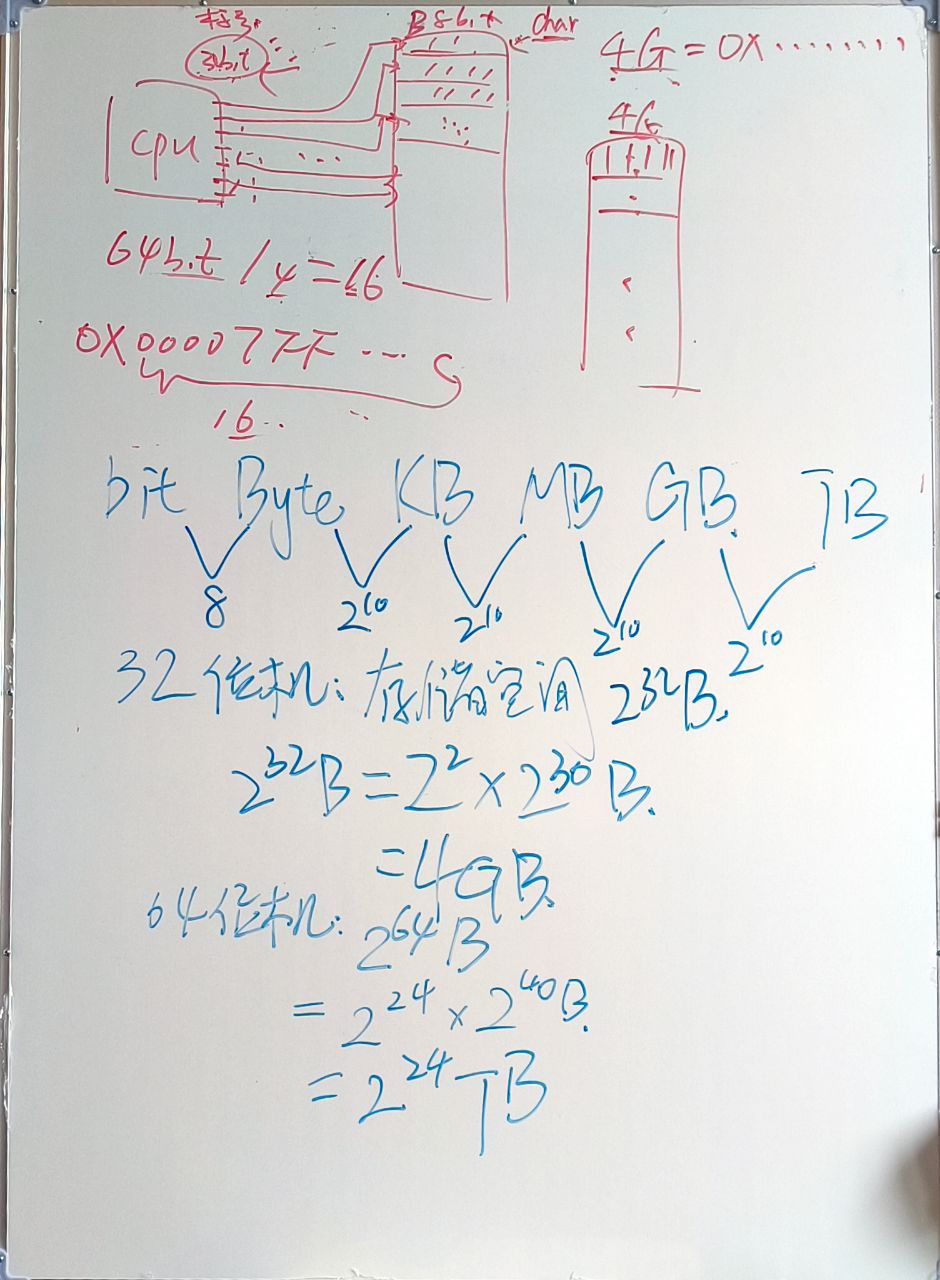 B 8bit
char
4G = 0X ········
3bit
cpu
4G
64bit / 4 = 16
0X00007FF ···
16
bit Byte KB MB GB TB
8 2¹⁰ 2¹⁰ 2¹⁰ 2¹⁰
32位机: 存储空间 2³²B.
2³²B = 2² × 2³⁰ B.
= 4GB.
64位机: 2⁶⁴B
= 2²⁴ × 2⁴⁰B.
= 2²⁴ TB